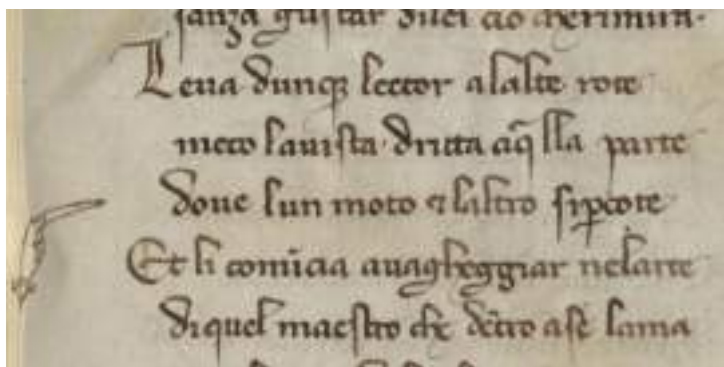 sanza gustar dilei cio cherimun.
Leua dunqꝫ lector alalte rote
meco lauista. dritta aq̃lla parte
doue lun moto ⁊ laltro siꝑcote
Et li comĩcia auagheggiar nelarte
diquel maestro che dẽtro ase lama